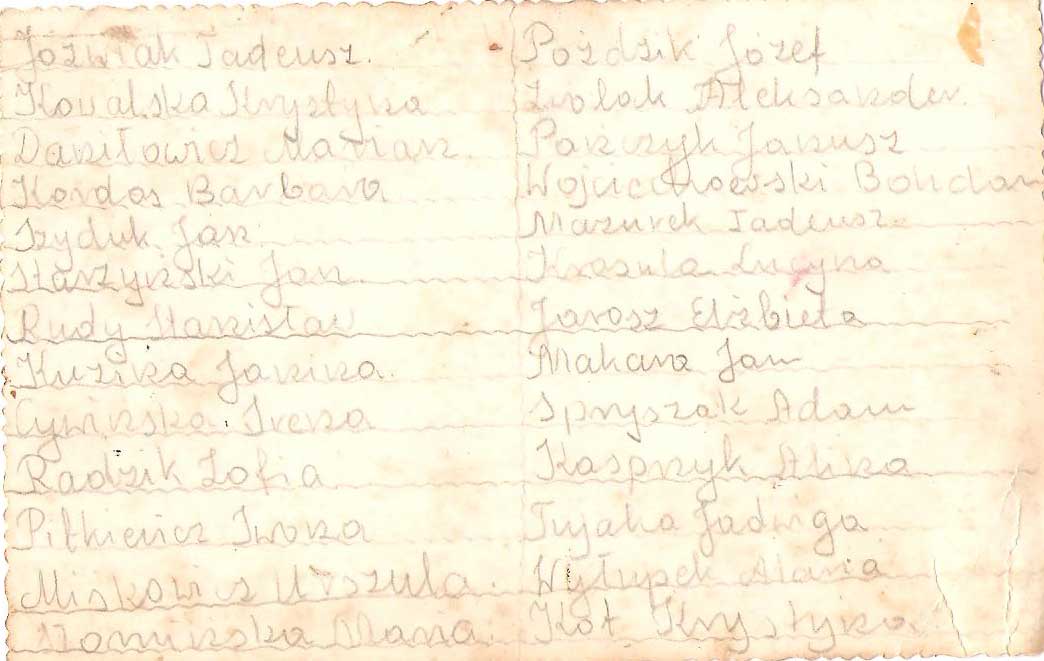 Jóźwiak Tadeusz.
Kowalska Krystyna
Daniłowicz Marian
Kordas Barbara
Szyduk Jan
Starzyński Jan
Rudy Stanisław
Kuźika Janina.
Cymińska Irena
Radzik Zofia
Pitkiewicz Iwona
Miskowicz Urszula.
Maria.
Póździk Józef
Zwolak Aleksander.
Pańczyk Janusz
Bohdan
Mazurek Tadeusz
Lucyna
Jarosz Elżbieta
Makara Jan
Spryszak Adam
Kasprzyk Alina
Tujaka Jadwiga
Wyłupek Maria
Kot Krystyna